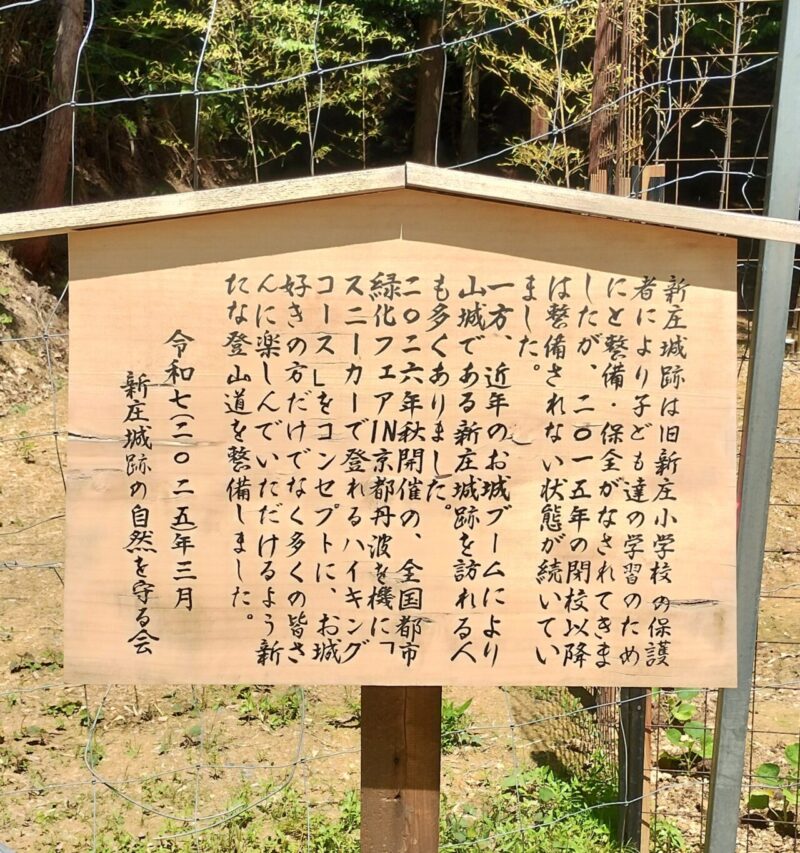 新庄城跡は旧新庄小学校の保護
者により子ども達の学習のため
にと整備・保全がなされてきま
したが、二〇一五年の閉校以降
は整備されない状態が続いてい
ました。
一方、近年のお城ブームにより
山城である新庄城跡を訪れる人
も多くありました。
二〇二六年秋開催の、全国都市
緑化フェアIN京都丹波を機に「
スニーカーで登れるハイキング
コース」をコンセプトに、お城
好きの方だけでなく多くの皆さ
んに楽しんでいただけるよう新
たな登山道を整備しました。
令和七(二〇二五)年三月
新庄城跡の自然を守る会